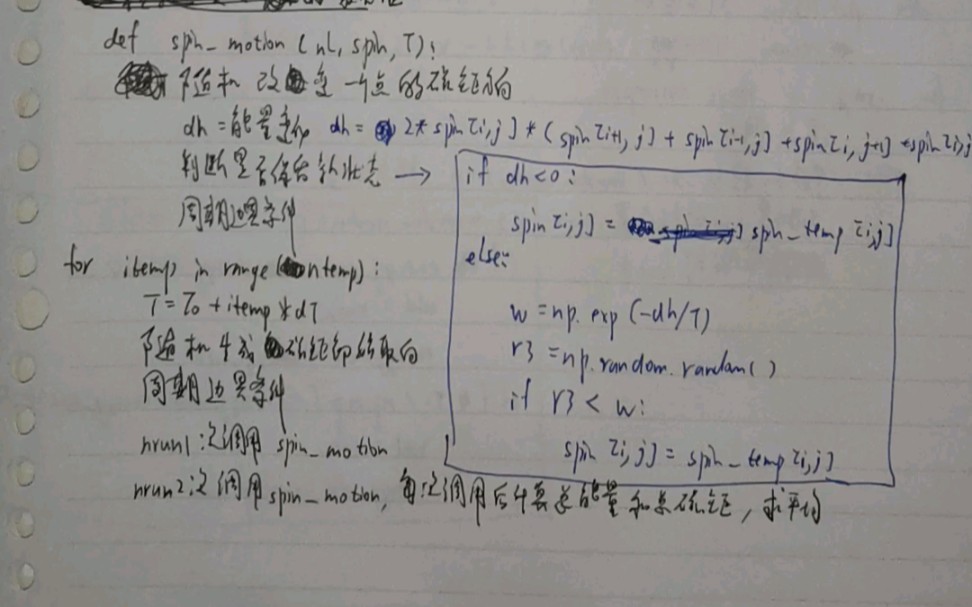 def spin_motion (nl, spin, T):
随机改变一点的磁矩的
dh = 能量变化 dh = 2* spin[i,j] * (spin[i+1, j] + spin[i-1, j] + spin[i, j+1] + spin[i,j
判断是否保留新状态 →
周期边界条件
if dh<0:
spin[i,j] = spin_temp [i,j]
else:
w = np.exp (-dh/T)
r3 = np.random.random()
if r3 < w:
spin [i,j] = spin_temp[i,j]
for itemp in range (ntemp):
T = T0 + itemp * dT
随机生成磁矩的取向
周期边界条件
nrun1次调用 spin_motion
nrun2次调用 spin_motion, 每次调用后计算总能量和总磁矩, 求平均